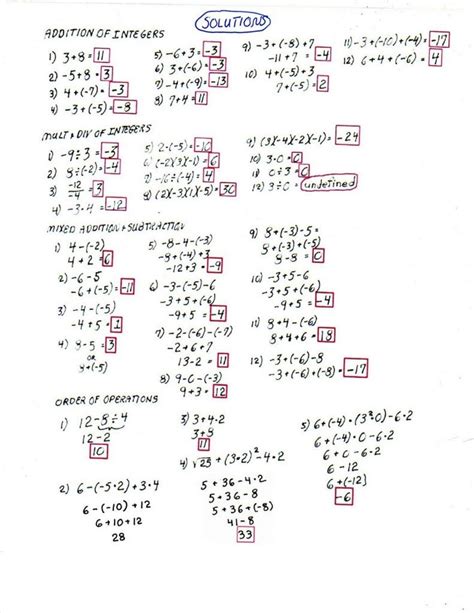 SOLUTIONS
ADDITION OF INTEGERS
1) 3+8= 11
2) -5+8= 3
3) 4+(-7)= -3
4) -3+(-5)= -8
5) -6+3= -3
6) 3+(-6)= -3
7) -4+(-9)= -13
8) 7+4= 11
9) -3+(-8)+7
-11+7 = -4
10) 4+(-5)+3
7+(-5)= 2
11) -3+(-10)+(-4)= -17
12) 6+4+(-6)= 4
MULT & DIV OF INTEGERS
1) -9÷3= -3
2) 8÷(-2)= -4
3) -12/-4 = 3
4) -3·4= -12
5) 2·(-5)= -10
6) (-2)(3)(-1)= 6
7) -16÷(-4)= 4
8) (2)(-3)(1)(-5)= 30
9) (3)(-4)(-2)(-1)= -24
10) 3·0= 0
11) 0÷3= 0
12) 3÷0= undefined
MIXED ADDITION & SUBTRACTION
1) 4-(-2)
4+2= 6
2) -6-5
-6+(-5)= -11
3) -4-(-5)
-4+5= 1
4) 8-5= 3
OR
8+(-5)
5) -8-4-(-3)
-8+(-4)+3
-12+3= -9
6) -3-(-5)-6
-3+5+(-6)
-9+5= -4
7) -2-(-6)-(-7)
-2+6+7
13-2= 11
8) 9-0-(-3)
9+3= 12
9) 8+(-3)-5=
8+(-3)+(-5)
8-8= 0
10) -3+5-6
-3+5+(-6)
-9+5= -4
11) 8+4-(-6)
8+4+6= 18
12) -3+(-6)-8
-3+(-6)+(-8)= -17
ORDER OF OPERATIONS
1) 12-8÷4
12-2
10
2) 6-(-5·2)+3·4
6-(-10)+12
6+10+12
28
3) 3+4·2
3+8
11
4) √25+(3·2)²-4·2
5+36-4·2
5+36-8
5+36+(-8)
41-8
33
5) 6+(-4)·(3²·0)-6·2
6+(-4)·0-6·2
6+0-6·2
6-12
6+(-12)
-6